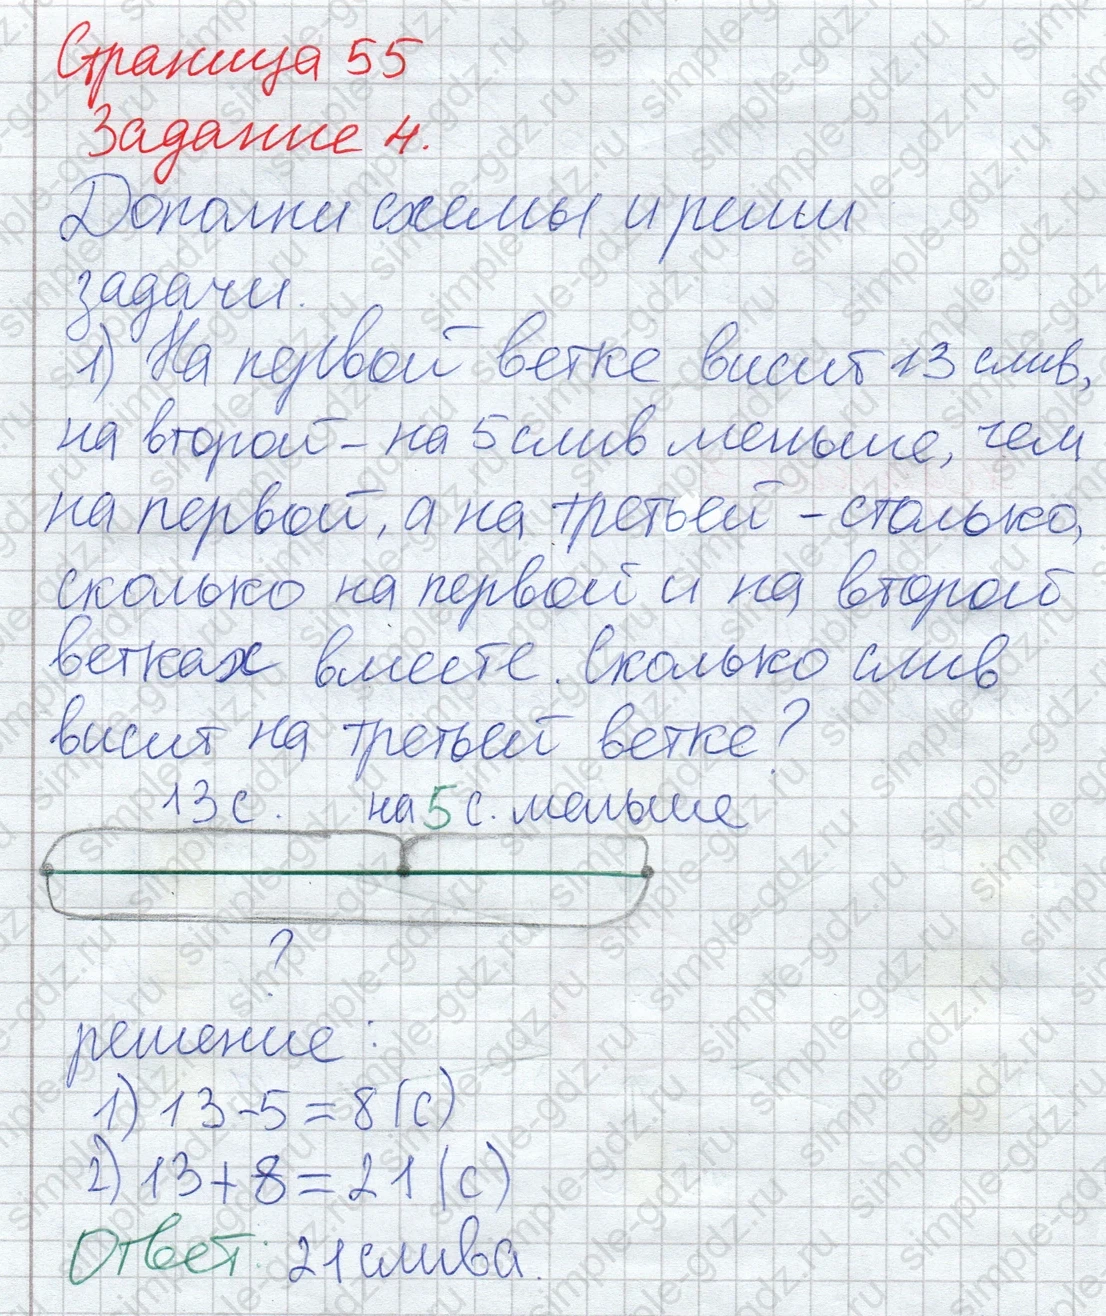 Страница 55
Задание 4.
Дополни схемы и реши
задачи.
1) На первой ветке висит 13 слив,
на второй – на 5 слив меньше, чем
на первой, а на третьей – столько,
сколько на первой и на второй
ветках вместе. Сколько слив
висит на третьей ветке?
13 с. на 5 с. меньше
?
решение:
1) 13-5=8(с)
2) 13+8=21(с)
Ответ: 21 слива.